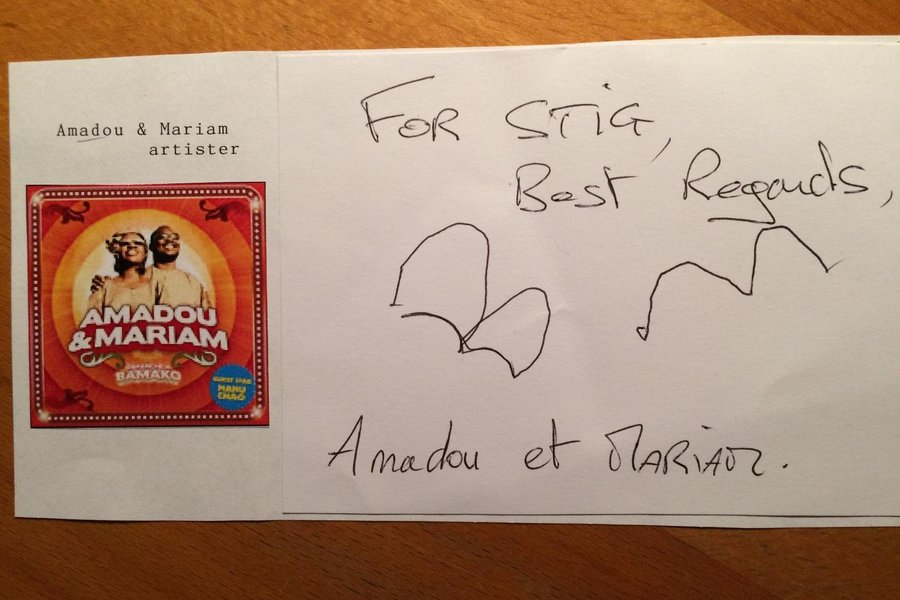 Amadou & Mariam
artister
AMADOU
& MARIAM
DIMANCHE À
BAMAKO
GUEST STAR
MANU
CHAO
FOR STIG,
Best Regards,
Amadou et MARIAM.